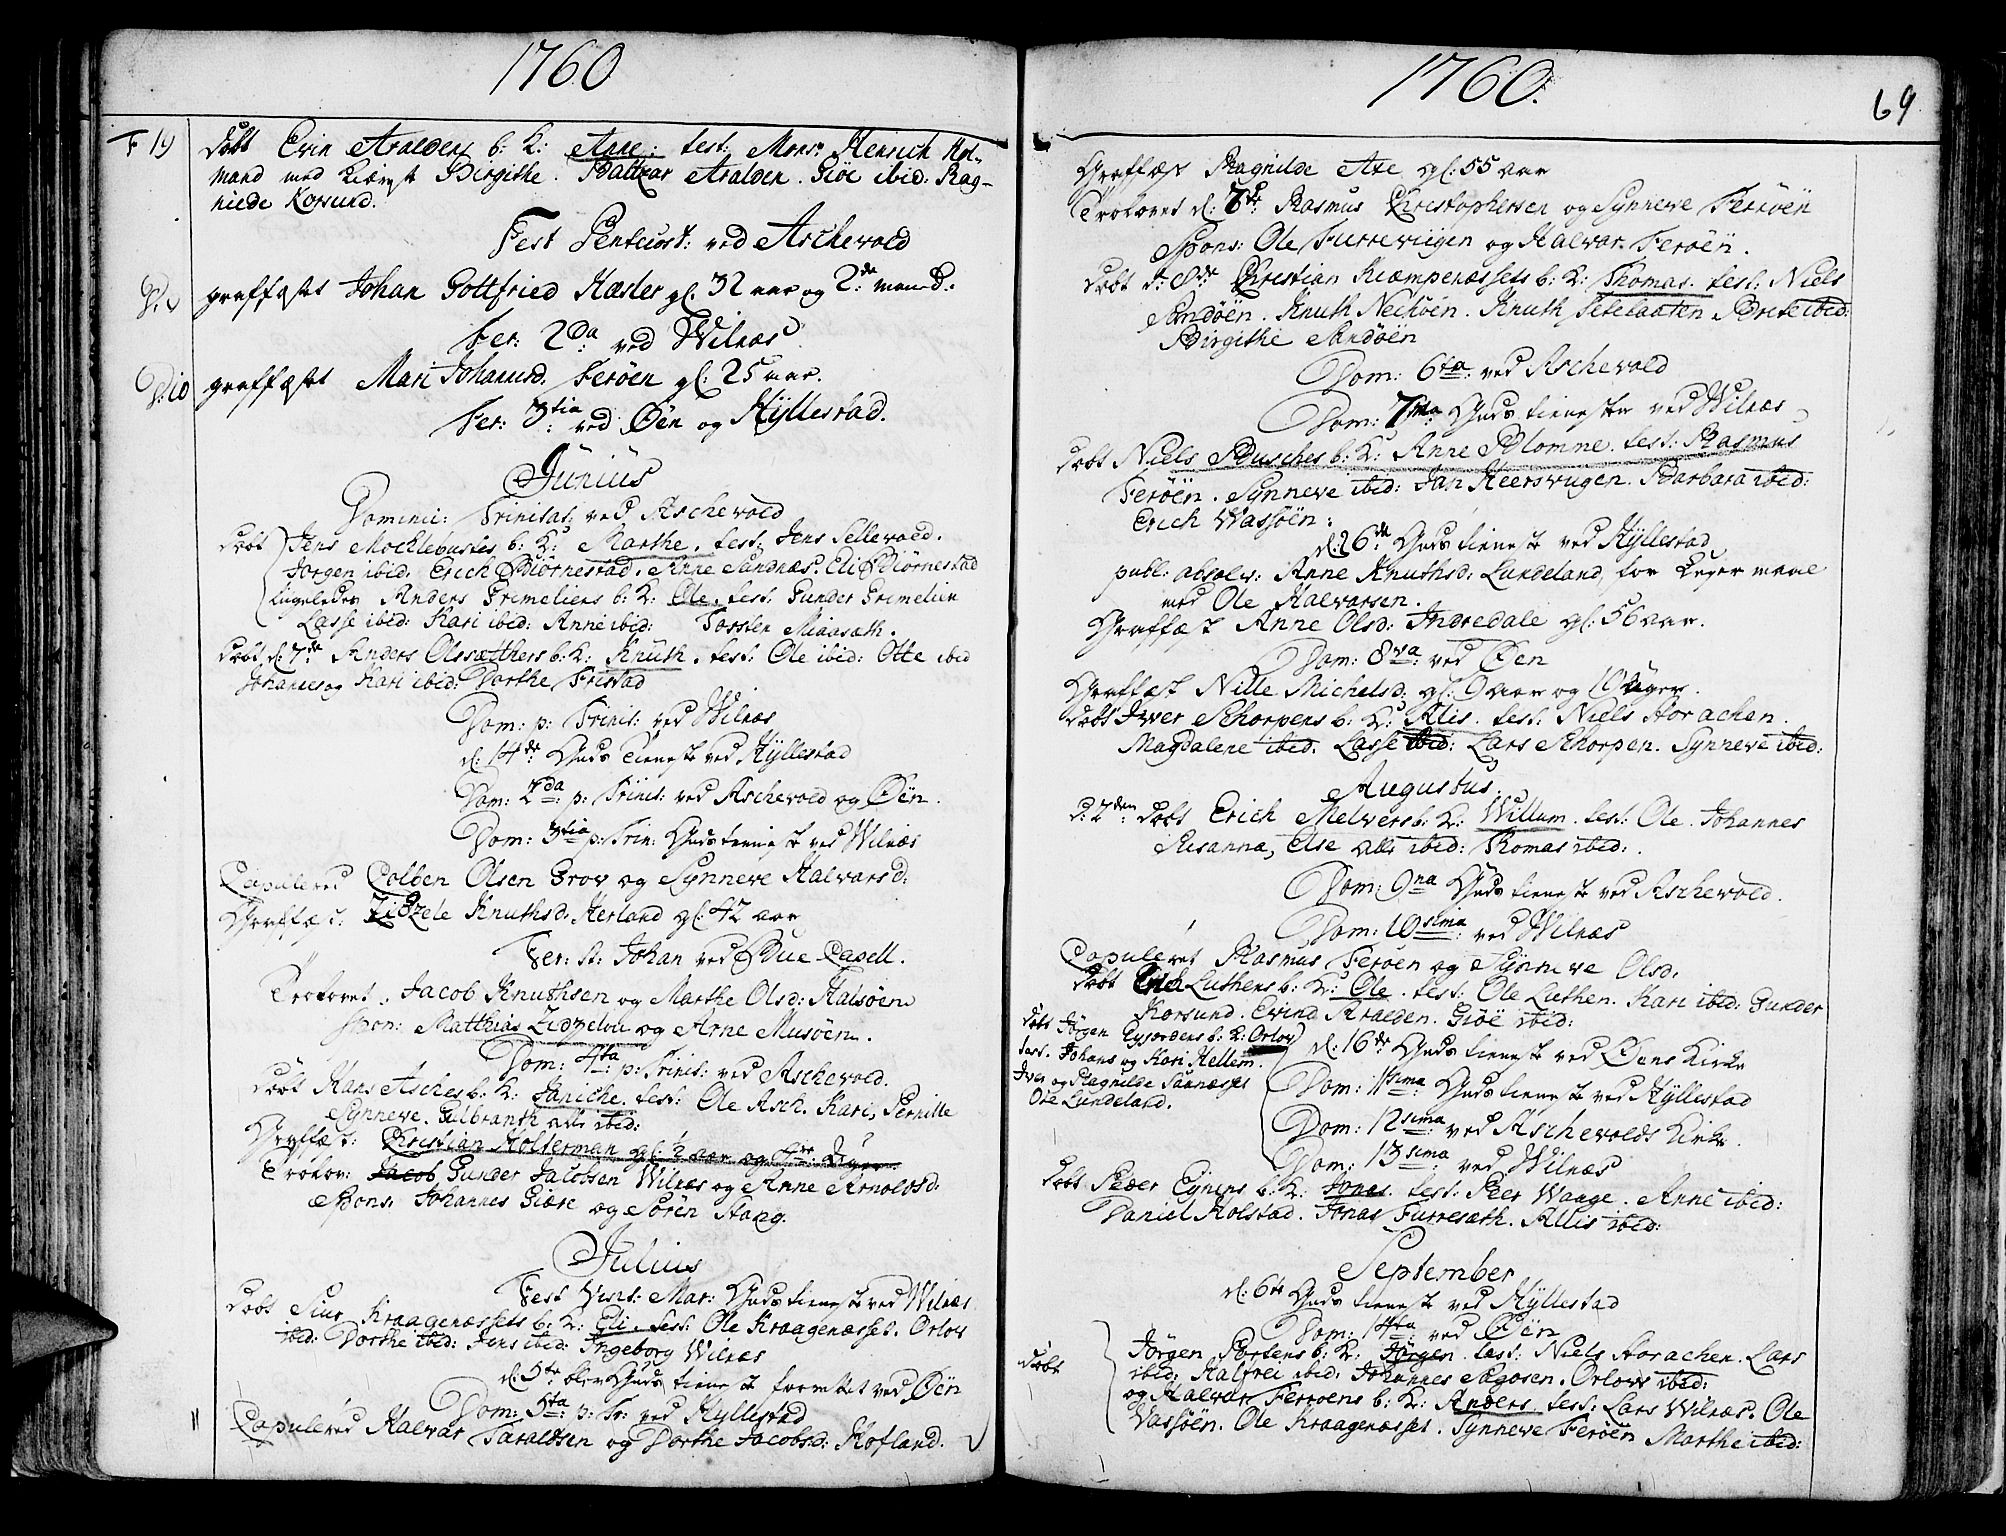 1760
F 19 døbt Evin Aralden b: K: Anne: test: Mons: Henrich Hol-
mand med Kiærest Birgithe. Baltzar Aralden. Giøe ibid: Rag-
nilde Korsund.
Fest Pentecost: ved Aschevold
graffæstet Johan Gottfried Kæsler gl: 32 aar og 2: maaned.
Fer: 2da ved Wilnæs
graffæstet Mari Johannsd. Ferøen gl: 25 aar.
Fer: 3tia ved Øen og Hÿllestad.
Junius
Dominic: Trinitat: ved Aschevold
døbt Jens Mocklebustes b: K: Marthe. test: Jens Sellevold.
Jørgen ibid: Erich Biørnestad. Anne Sandnæs. Eli Biørnestad
Ligeledes Anders Grimeliens b: K: Ole. test: Gunder Grimelien
Lasse ibid: Kari ibid: Anne ibid: Torsten Miaasæth.
Døbt d: 7de Anders Olssætthers b: K: Knuth. test: Ole ibid: Otte ibid
Johannes og Kari ibid: Dorthe Fristad
Dom: p: Trinit: ved Wilnæs
d: 14de Guds Tieneste ved Hÿllestad
Dom: 2da: p: Trinit: ved Aschevold og Øen.
Dom: 3tia p: Trin: Guds tienest ved Wilnæs
Copulered Colben Olsen Grov og Sÿnneve Halvarsd:
Graffæst: Zidzele Knuthsd. Herland gl: 42 aar
Fer: st: Johan ved Bue Capell.
Trolovet. Jacob Knuthsen og Marthe Olsd: Halsøen
spon: Matthias Zidzelou og Arne Musøen.
Dom: 4ta: p: Trinit: ved Aschevold.
Døbt Hans Asches b: K: Janiche. test: Ole Asch. Kari, Pernille
Synneve. Gulbranth alle ibid:
Graffæst: Christian Holterman gl: ½ aar og Uger
Trolov: Jacob Gunder Jacobsen Wilnæs og Anne Arnoldsd:
Spons: Johannes Giære og Søren Stang.
Julius
Fest Visit: Mar: Guds tieneste ved Wilnæs
døbt Siur Kraagenæssets b: K: Eli. test: Ole Kraagenæsset. Orlov
ibid: Dorthe ibid: Jens ibid: Ingeborg Wilnæs
d: 5te blev Guds tienest forrettet ved Øen
Dom: 5ta: p: Tr: ved Hyllestad
Copulered Halvar Taraldsen og Dorthe Jacobsd: Hofland.
1760.
69
Graffæst Ragnilde Ate gl: 55 aar
Trolovet d: 7de: Rasmus Christophersen og Synneve Ferøen
Spons: Ole Furreviigen og Halvar Ferøen.
døbt d: 8de Christian Kiæmpenæssets b: K: Thomas. test: Niels
Sandøen. Knuth Nechøen. Knuth Tetelaaten Brite ibid:
Birgithe Sandøen
Dom: 6ta: ved Aschevold
Dom: 7ma Guds tieneste ved Wilnæs
døbt Niels Busches b: K: Anne Blomme. test: Rasmus
Ferøen. Synneve ibid: Jan Heersvugen. Barbara ibid:
Erich Wassøen:
d: 26de Guds tienest ved Hÿllestad
publ: absolv: Anne Knuthsd: Lundeland, for Leger maal
med Ole Halvarsen.
Graffæst Anne Olsd: Indredale gl: 56 aar.
Dom: 8va: ved Øen
Graffæst Nille Michelsd: gl: 0 aar og 10 Uger.
døbt Iver Schorpens b: K: Allis. test: Niels Storachen.
Magdalene ibid. Lasse ibid: Lars Schorpen. Synneve ibid:
Augustus.
d: 2den: døbt Erich Melvers b: K: Willum. test: Ole. Johannes
Susanna, Else alle ibid: Thomas ibid:.
Dom: 9na Guds tieneste ved Aschevold.
Dom: 10sima ved Wilnæs
Copuleret Rasmus Ferøen og Synneve Olsd:
døbt Erich Luthens b: K: Ole. test: Ole Luthen. Kari ibid: Gunder
Korsund. Evind Aralden. Giøe ibid:
døbt Jørgen Gysordens b: K: Orlov
test. Johans og Kari Hellem.
Iver og Ragnilde Sannæsset
Ole Lundeland.
d: 16de Guds tienest ved Øens Kirke
Dom: 11sima Guds tieneste ved Hÿllestad
Dom: 12sima: ved Aschevolds Kirke.
Dom: 13sima: ved Wilnæs
døbt Peder Eynens b: K: Jonas. test: Peer Waage. Anne ibid:
Daniel Holstad. Jonas Furresæth. Allis ibid:
September
d: 6te Guds tienest ved Hÿllestad
Dom: 14ta: ved Øen
døbt Jørgen Portens b: K: Jørgen. test: Niels Storachen. Lars
ibid: Halfrei ibid: Johannes Søgosen. Orlov ibid:
og Halvar Ferroens b: K: Anders. test: Lars Wilnæs. Ole
Vassøen. Ole Kraagenæsset. Synneve Ferøen Marthe ibid: